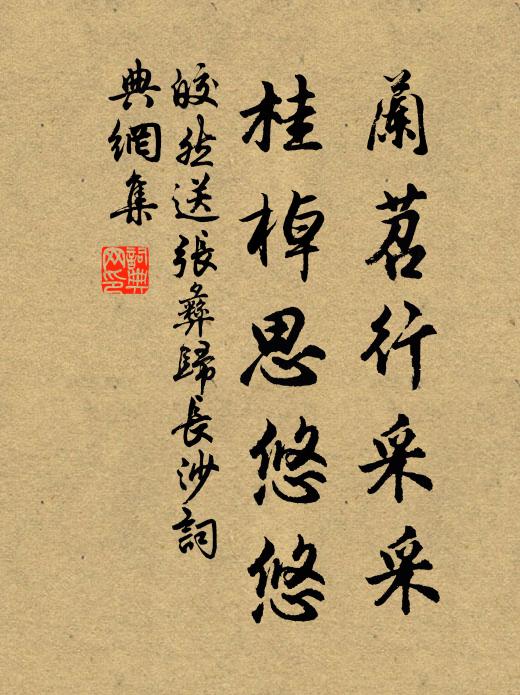 蘭苕行采采
桂棹思悠悠
皎然送張彝歸長沙詞
典網集
詞典網印